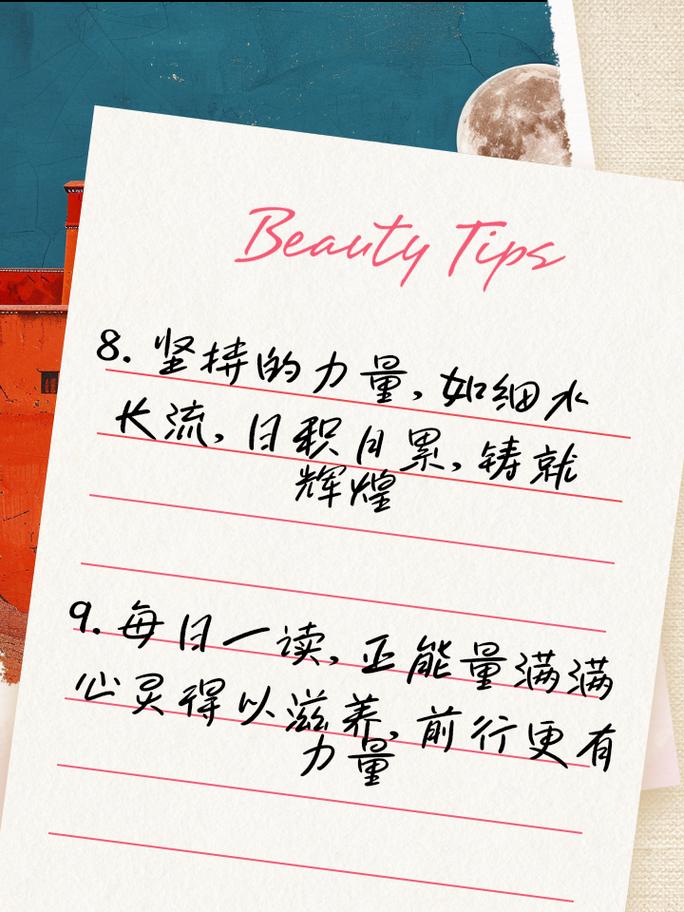 Beauty Tips
8. 坚持的力量，如细水
长流，日积月累，铸就
辉煌
9. 每日一读，正能量满满
心灵得以滋养，前行更有
力量